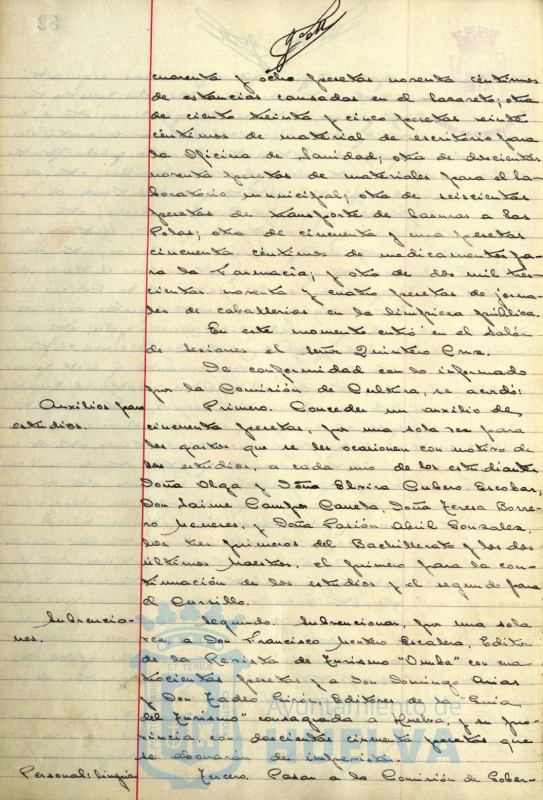 cuarenta y ocho pesetas noventa céntimos
de estancias causadas en el Lazareto; otra
de ciento treinta y cinco pesetas veinte
céntimos de material de escritorio para
la Oficina de Sanidad; otra de doscientas
noventa pesetas de materiales para el La-
boratorio municipal; otra de seiscientas
pesetas de transporte de basuras a las
Potas; otra de cincuenta y una pesetas
cincuenta céntimos de medicamentos pa-
ra la Farmacia; y otra de dos mil tres-
cientas noventa y cuatro pesetas de jorna-
les de caballerías en la limpieza pública.
En este momento entró en el Salón
de sesiones el señor Quintero Cruz.
De conformidad con lo informado
por la Comisión de Cultura, se acordó:
Auxilios para
estudios.
Primero. Conceder un auxilio de
cincuenta pesetas, por una sola vez para
los gastos que se les ocasionen con motivo de
sus estudios, a cada uno de los estudiantes
Doña Olga y Doña Elvira Cubero Escobar,
Don Jaime Campos Caneta, Doña Teresa Borre-
ro Meneses, y Doña Pasión Abril González,
los tres primeros del Bachillerato y los dos
últimos Maestros, el primero para la con-
tinuación de los estudios y el segundo para
el Cursillo.
Subvencio-
nes.
Segundo. Subvencionar, por una sola
vez, a Don Francisco Montero Escalera, Editor
de la Revista de Turismo "Onuba" con cua-
trocientas pesetas y a Don Domingo Arias
y Don Tadeo Girón, Editores de la "Guía
del Turismo" consagrada a Huelva, y su pro-
vincia, con doscientas cincuenta pesetas que
se abonarán de imprevistos.
Personal: lingüis
Tercero. Pasar a la Comisión de Gober-
ET TERRA
Ayuntamiento de
HUELVA